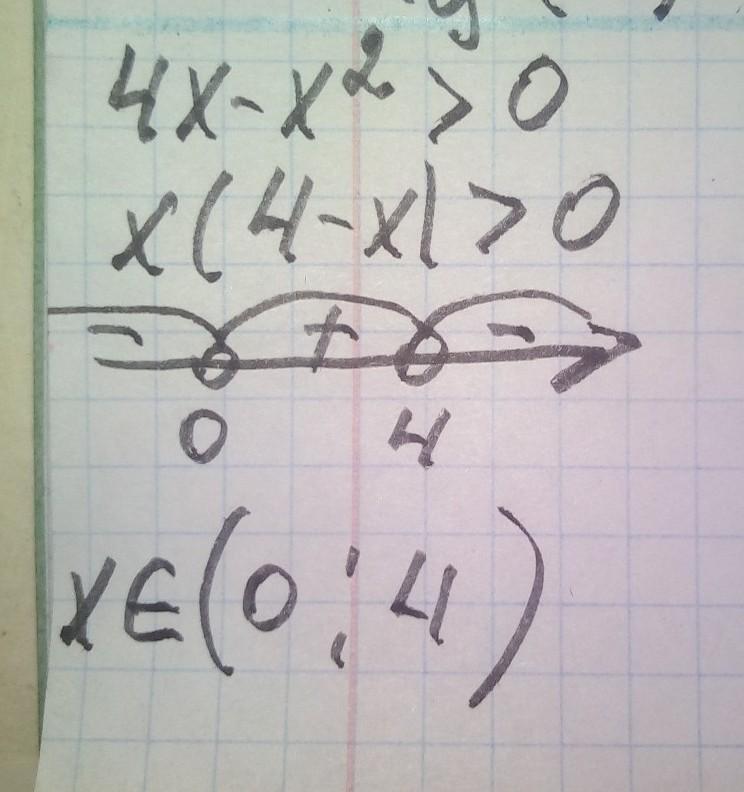 4x-x²>0
x(4-x)>0
- + -
0 4
x∈(0;4)